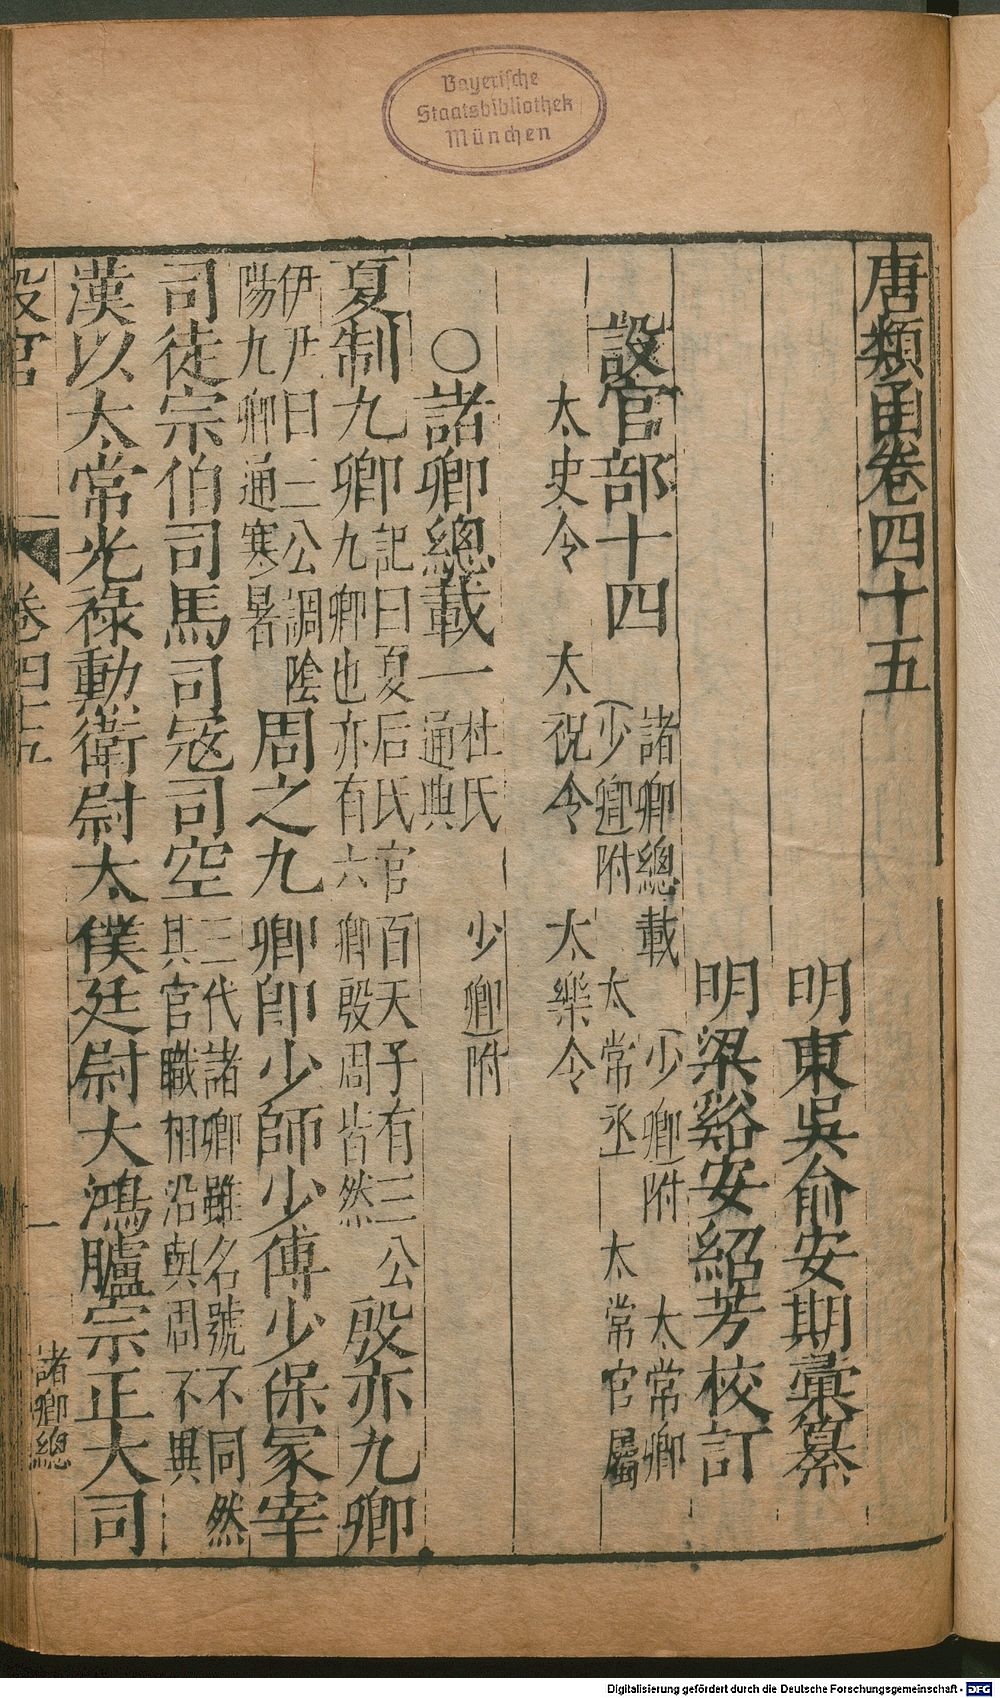 Bayerische
Staatsbibliothek
München
唐類函卷四十五
明東吳俞安期彙纂
明梁谿安紹芳校訂
設官部十四
諸卿總載 少卿附 太常卿
少卿附 太常丞 太常官屬
太史令 太祝令 太樂令
○諸卿總載一
杜氏 少卿附
通典
夏制九卿
記曰夏后氏官百天子有三公
九卿也亦有六卿殷周皆然
殷亦九卿
伊尹曰三公調陰
陽九卿通寒暑
周之九卿卽少師少傅少保冢宰
司徒宗伯司馬司寇司空
三代諸卿雖名號不同然
其官職相沿與周不異
漢以太常光祿勳衛尉太僕廷尉大鴻臚宗正大司
設官 卷四十五 一 諸卿總
Digitalisierung gefördert durch die Deutsche Forschungsgemeinschaft - DFG